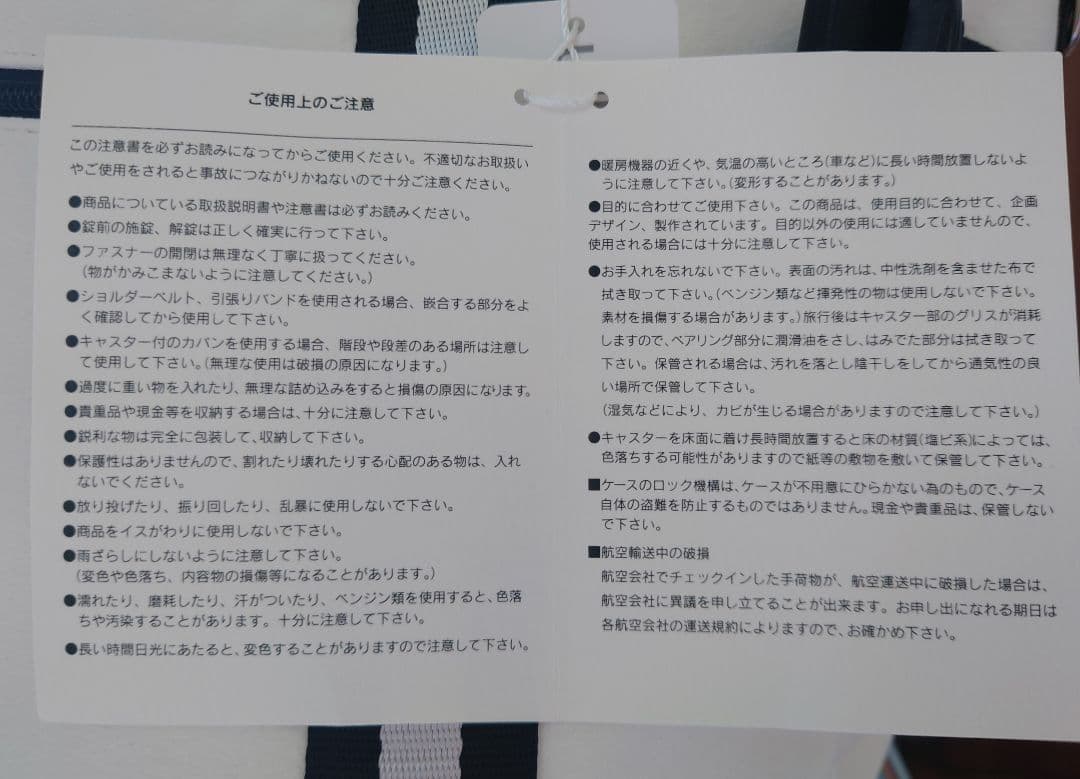 ご使用上のご注意
この注意書を必ずお読みになってからご使用ください。不適切なお取扱い
やご使用をされると事故につながりかねないので十分ご注意ください。
●商品についている取扱説明書や注意書は必ずお読みください。
●錠前の施錠、解錠は正しく確実に行って下さい。
●ファスナーの開閉は無理なく丁寧に扱ってください。
(物がかみこまないように注意してください。)
●ショルダーベルト、引張りバンドを使用される場合、嵌合する部分をよ
く確認してから使用して下さい。
●キャスター付のカバンを使用する場合、階段や段差のある場所は注意し
て使用して下さい。(無理な使用は破損の原因になります。)
●過度に重い物を入れたり、無理な詰め込みをすると損傷の原因になります。
●貴重品や現金等を収納する場合は、十分に注意して下さい。
●鋭利な物は完全に包装して、収納して下さい。
●保護性はありませんので、割れたり壊れたりする心配のある物は、入れ
ないでください。
●放り投げたり、振り回したり、乱暴に使用しないで下さい。
●商品をイスがわりに使用しないで下さい。
●雨ざらしにしないように注意して下さい。
(変色や色落ち、内容物の損傷等になることがあります。)
●濡れたり、磨耗したり、汗がついたり、ベンジン類を使用すると、色落
ちや汚染することがあります。十分に注意して下さい。
●長い時間日光にあたると、変色することがありますので注意して下さい。
●暖房機器の近くや、気温の高いところ(車など)に長い時間放置しないよ
うに注意して下さい。(変形することがあります。)
●目的に合わせてご使用下さい。この商品は、使用目的に合わせて、企画
デザイン、製作されています。目的以外の使用には適していませんので、
使用される場合には十分に注意して下さい。
●お手入れを忘れないで下さい。表面の汚れは、中性洗剤を含ませた布で
拭き取って下さい。(ベンジン類など揮発性の物は使用しないで下さい。
素材を損傷する場合があります。)旅行後はキャスター部のグリスが消耗
しますので、ベアリング部分に潤滑油をさし、はみでた部分は拭き取って
下さい。保管される場合は、汚れを落とし陰干しをしてから通気性の良
い場所で保管して下さい。
(湿気などにより、カビが生じる場合がありますので注意して下さい。)
●キャスターを床面に着け長時間放置すると床の材質(塩ビ系)によっては、
色落ちする可能性がありますので紙等の敷物を敷いて保管して下さい。
■ケースのロック機構は、ケースが不用意にひらかない為のもので、ケース
自体の盗難を防止するものではありません。現金や貴重品は、保管しない
で下さい。
■航空輸送中の破損
航空会社でチェックインした手荷物が、航空運送中に破損した場合は、
航空会社に異議を申し立てることが出来ます。お申し出になれる期日は
各航空会社の運送規約によりますので、お確かめ下さい。